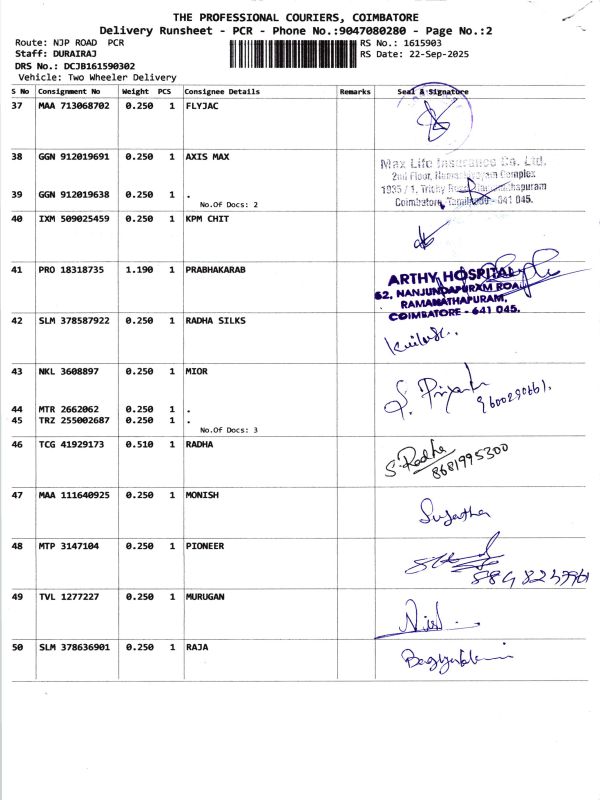 THE PROFESSIONAL COURIERS, COIMBATORE
Delivery Runsheet - PCR - Phone No.:9047080280 - Page No.:2
Route: NJP ROAD PCR RS No.: 1615903
Staff: DURAIRAJ RS Date: 22-Sep-2025
DRS No.: DCJB161590302
Vehicle: Two Wheeler Delivery
S No Consignment No Weight PCS Consignee Details Remarks Seal & Signature
37 MAA 713068702 0.250 1 FLYJAC
38 GGN 912019691 0.250 1 AXIS MAX
Max Life Insurance Co. Ltd.
2nd Floor, Complex
39 GGN 912019638 0.250 1 .
1935 / 1, Trichy
No.Of Docs: 2
Coimbatore, Tamilnadu - 641 045.
40 IXM 509025459 0.250 1 KPM CHIT
41 PRO 18318735 1.190 1 PRABHAKARAB
ARTHY HOSPITAL
62, NANJUNDAPURAM ROAD
RAMANATHAPURAM,
COIMBATORE - 641 045.
42 SLM 378587922 0.250 1 RADHA SILKS
43 NKL 3608897 0.250 1 MIOR
S. Priyanka
9600290661.
44 MTR 2662062 0.250 1 .
45 TRZ 255002687 0.250 1 .
No.Of Docs: 3
46 TCG 41929173 0.510 1 RADHA
S. Radha
8681995300
47 MAA 111640925 0.250 1 MONISH
Sujatha
48 MTP 3147104 0.250 1 PIONEER
49 TVL 1277227 0.250 1 MURUGAN
50 SLM 378636901 0.250 1 RAJA